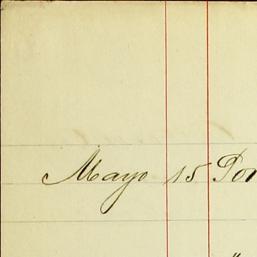 Mayo 15 Por